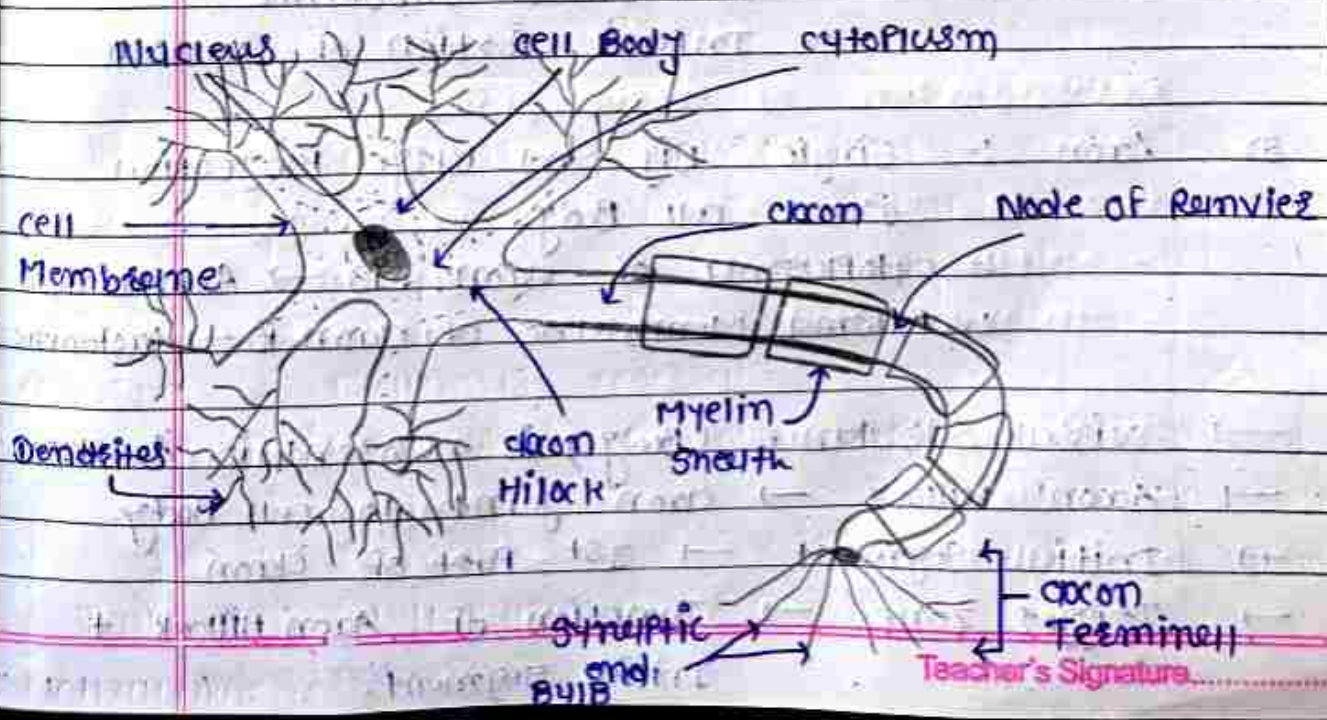 Nucleus
cell Body
cytoplusm
cell
Membrane
axon
Node of Renvier
Dendrites
axon
Hilock
Myelin
Sheath
axon
Terminell
Synaptic
end:
BulB
Teacher's Signature